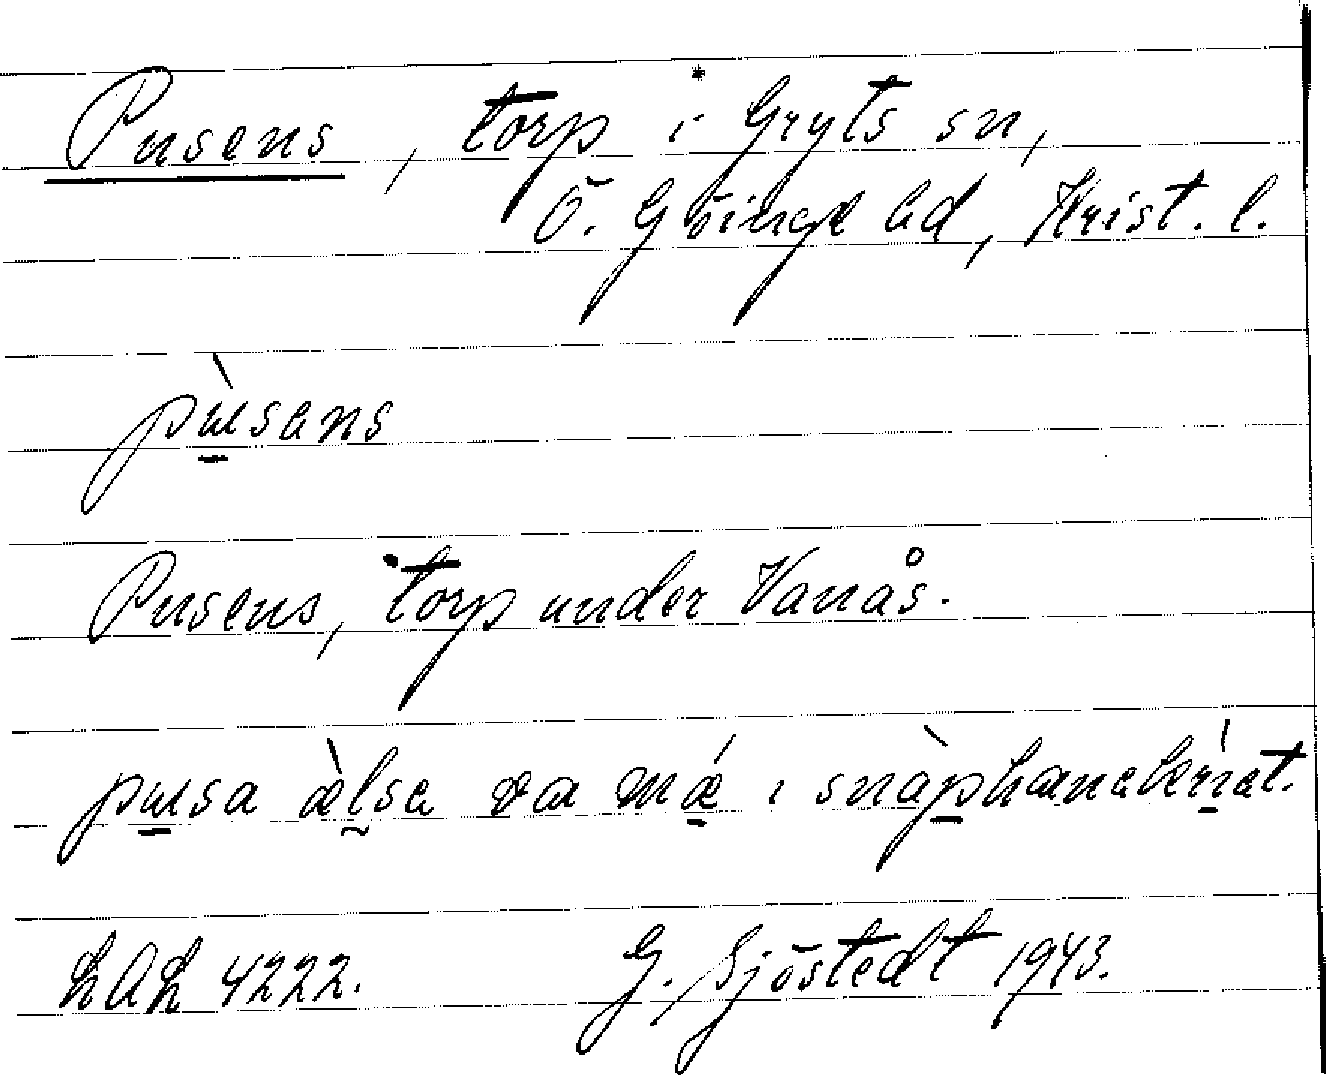 Pusens, torp i Gryts sn,
Ö. Göinge hd, Krist. l.
pùsans
Pusens, torp under Vanås.
pusa àlsa va mǽ i snàphanekríet.
LAL 4222. G. Sjöstedt 1943.